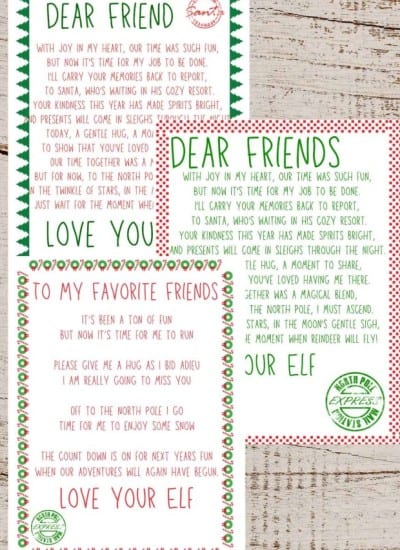 DEAR FRIEND
Santa
WITH JOY IN MY HEART, OUR TIME WAS SUCH FUN,
BUT NOW IT'S TIME FOR MY JOB TO BE DONE.
I'LL CARRY YOUR MEMORIES BACK TO REPORT,
TO SANTA, WHO'S WAITING IN HIS COZY RESORT.
YOUR KINDNESS THIS YEAR HAS MADE SPIRITS BRIGHT,
AND PRESENTS WILL COME IN SLEIGHS THROUGH THE NIGHT.
TODAY, A GENTLE HUG, A MO
TO SHOW THAT YOU'VE LOVED
OUR TIME TOGETHER WAS A M
BUT FOR NOW, TO THE NORTH PO
IN THE TWINKLE OF STARS, IN THE
JUST WAIT FOR THE MOMENT WHE
LOVE YOU
DEAR FRIENDS
WITH JOY IN MY HEART, OUR TIME WAS SUCH FUN,
BUT NOW IT'S TIME FOR MY JOB TO BE DONE.
I'LL CARRY YOUR MEMORIES BACK TO REPORT,
TO SANTA, WHO'S WAITING IN HIS COZY RESORT.
YOUR KINDNESS THIS YEAR HAS MADE SPIRITS BRIGHT,
AND PRESENTS WILL COME IN SLEIGHS THROUGH THE NIGHT.
TLE HUG, A MOMENT TO SHARE,
YOU'VE LOVED HAVING ME THERE.
GETHER WAS A MAGICAL BLEND,
THE NORTH POLE, I MUST ASCEND.
STARS, IN THE MOON'S GENTLE SIGH,
E MOMENT WHEN REINDEER WILL FLY!
OUR ELF
NORTH POLE
EXPRESS
MAIL STATION
TO MY FAVORITE FRIENDS
IT'S BEEN A TON OF FUN
BUT NOW IT'S TIME FOR ME TO RUN
PLEASE GIVE ME A HUG AS I BID ADIEU
I AM REALLY GOING TO MISS YOU
OFF TO THE NORTH POLE I GO
TIME FOR ME TO ENJOY SOME SNOW
THE COUNT DOWN IS ON FOR NEXT YEARS FUN
WHEN OUR ADVENTURES WILL AGAIN HAVE BEGUN.
LOVE YOUR ELF
NORTH POLE
EXPRESS
MAIL STATION